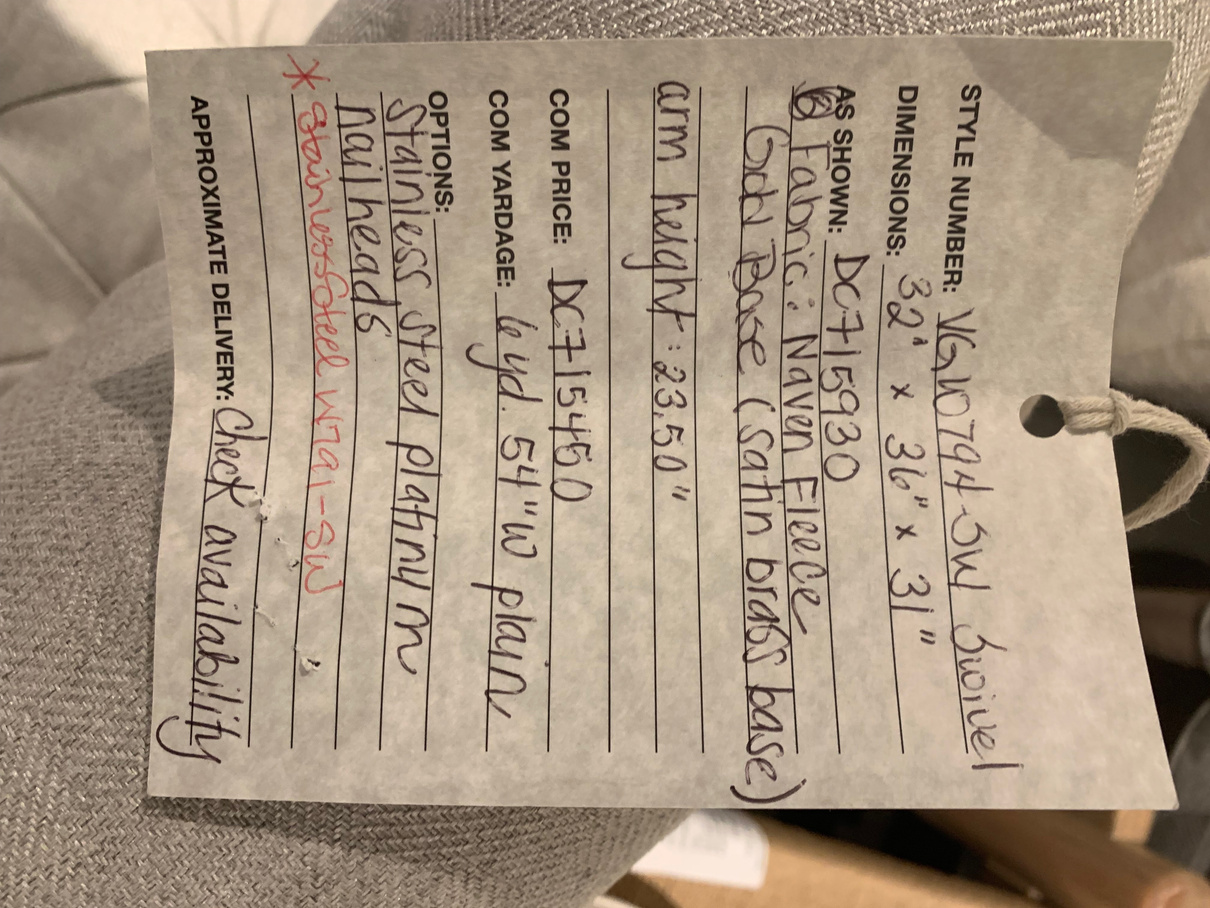 STYLE NUMBER: VGW0794-SW Swivel
DIMENSIONS: 32" x 36" x 31"
AS SHOWN: DC715930
Fabric: Naven Fleece
Gold Base (satin brass base)
arm height: 23.50"
COM PRICE: DC715450
COM YARDAGE: 6yd. 54"W plain
OPTIONS:
Stainless steel platinum
nailheads
* Stainless Steel W721-SW
APPROXIMATE DELIVERY: Check availability